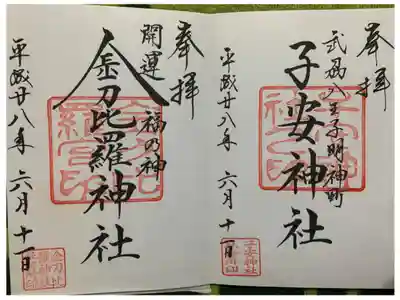 奉拝
武州八王子明神町
子安神社
平成廿八年 六月十一日
奉拝
開運 福の神
金刀比羅神社
平成廿八年 六月十一日